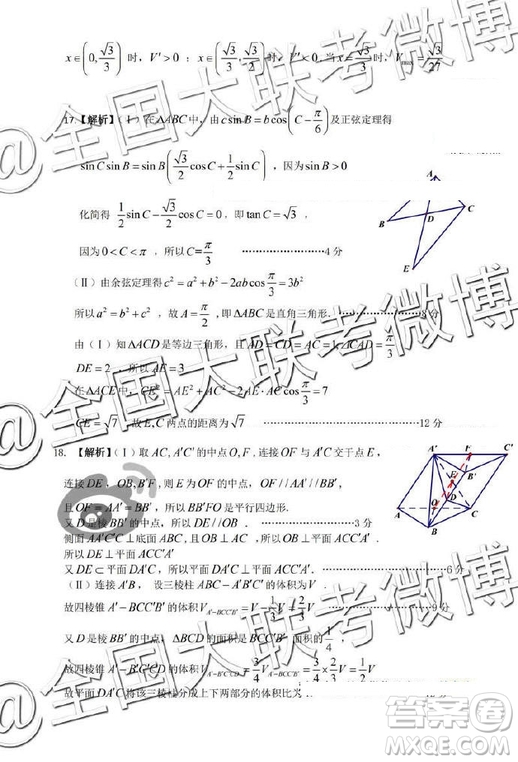 x∈(0, √3/3) 时，V'>0；x∈(√3/3, √3/2) 时，V'<0 当 x=√3/3 时，V_max=√3/27
17.【解析】(Ⅰ) 在△ABC中，由 c sin B = b cos(C − π/6) 及正弦定理得
sin C sin B = sin B (√3/2 cos C + 1/2 sin C)，因为 sin B > 0
化简得 1/2 sin C − √3/2 cos C = 0，即 tan C = √3，
因为 0 < C < π，所以 C = π/3 ………………4分
(Ⅱ) 由余弦定理得 c² = a² + b² − 2ab cos π/3 = 3b²
所以 a² = b² + c²，故 A = π/2，即△ABC是直角三角形.
由(Ⅰ)知△ACD是等边三角形，且 AD = CD = AC = 1，∠CAD = π/3
DE = 2，所以 AE = 3
在△ACE中，CE² = AE² + AC² − 2AE·AC cos π/3 = 7
CE = √7 故.E、C两点的距离为√7 ………………12分
A
B
C
D
E
18.【解析】(Ⅰ) 取 AC, A'C' 的中点 O, F，连接 OF 与 A'C 交于点 E，
连接 DE, OB, B'F，
又 D 是棱 BB' 的中点，所以 DE//OB ………………3分
侧面 AA'C'C⊥底面 ABC，OB⊥AC，所以 OB⊥平面 ACC'A'.
所以 DE⊥平面 ACC'A'
又 DE⊂平面 DA'C，所以平面 DA'C⊥平面 ACC'A' 6分
(Ⅱ) 连接 A'B，设三棱柱 ABC − A'B'C' 的体积为 V.
故四棱锥 A' − BCC'B' 的体积 V_A'−BCC'B' = V − 1/3 V = 2/3 V
又 D 是棱 BB' 的中点，△BCD 的面积是
故四棱锥 A' − B'C'CD 的体积 V_A'−B'C'CD = 3/4 V_A'−BCC'B' = 3/4 × 2/3 V = 1/2 V
故平面 DA'C 将该三棱柱分成上下两部分的体积比为
A'
F
C'
B'
E
D
A
O
C
B
@全国大联考微博
@全国大联考微博
@全国大联考微博
答案圈
MXQE.COM